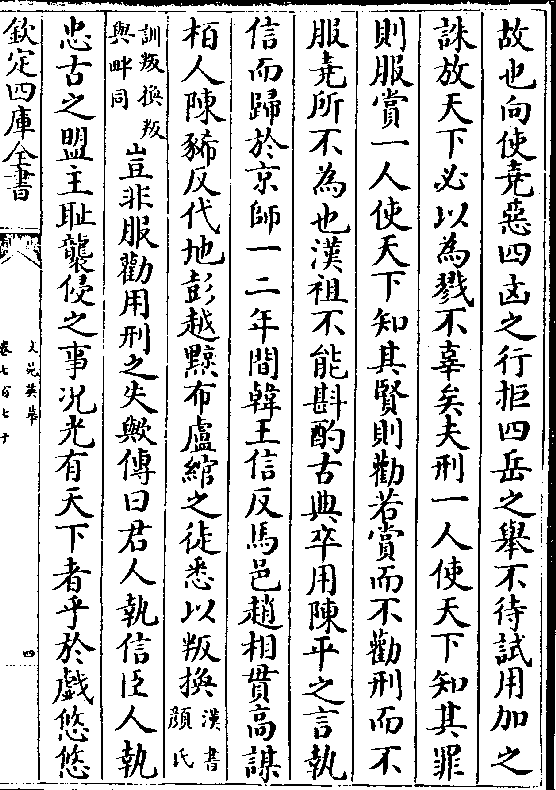 故也向使堯惡四凶之行拒四岳之舉不待試用加之
誅放天下必以為戮不辜矣夫刑一人使天下知其罪
則服賞一人使天下知其賢則勸若賞而不勸刑而不
服堯所不為也漢祖不能斟酌古典卒用陳平之言執
信而歸於京師一二年間韓王信反馬邑趙相貫高謀
栢人陳豨反代地彭越黥布盧綰之徒悉以叛換漢書顔氏
訓叛換叛與畔同豈非服勸用刑之失歟傳曰君人執信臣人執
忠古之盟主恥襲侵之事況光有天下者乎於戲悠悠
欽定四庫全書
文苑英華
卷七百七十
四